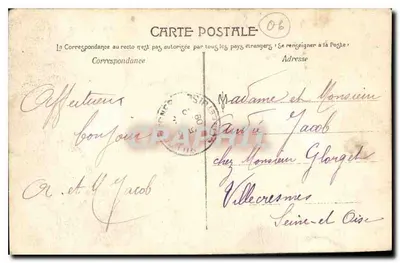 06
CARTE POSTALE
La Correspondance au recto n'est pas autorisée par tous les pays étrangers (Se renseigner à la Poste)
Correspondance
Adresse
Affectueux
bonjour
et Jacob
Madame et Monsieur
Jacob
chez Monsieur Glorget
Villecresnes
Seine-et Oise
CPARAMA